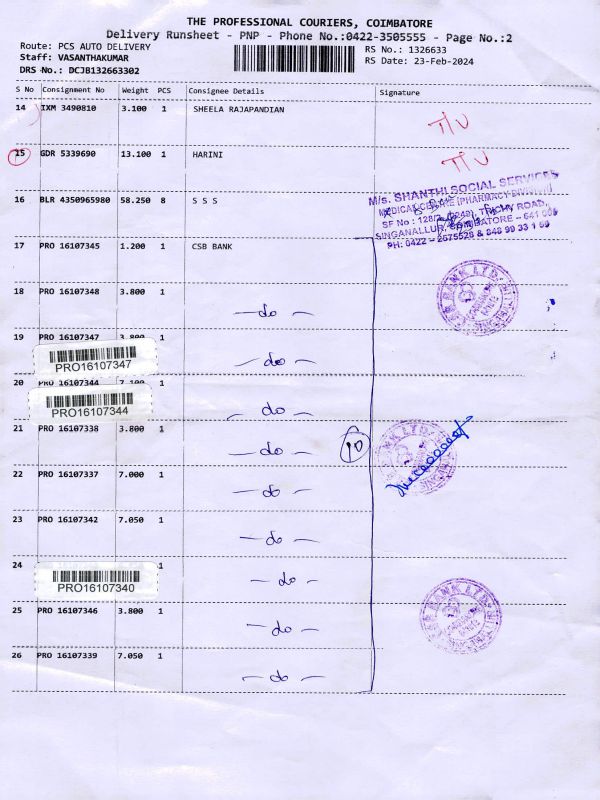 THE PROFESSIONAL COURIERS, COIMBATORE
Delivery Runsheet - PNP - Phone No.:0422-3505555 - Page No.:2
Route: PCS AUTO DELIVERY
RS No.: 1326633
Staff: VASANTHAKUMAR
RS Date: 23-Feb-2024
DRS No.: DCJB132663302
S No Consignment No Weight PCS Consignee Details Signature
14 IXM 3490810 3.100 1 SHEELA RAJAPANDIAN
15 GDR 5339690 13.100 1 HARINI
16 BLR 4350965980 58.250 8 S S S
M/s. SHANTHI SOCIAL SERVICES
MEDICAL CENTRE (PHARMACY DIVISION)
TRICHY ROAD,
SINGANALLUR, COIMBATORE – 641 005
PH: 0422 – 2675528 & 848 99 33 1 59
17 PRO 16107345 1.200 1 CSB BANK
18 PRO 16107348 3.800 1 — do —
19 PRO 16107347 3.800 1 — do —
PRO16107347
20 PRO 16107344 7.100 1 — do —
PRO16107344
21 PRO 16107338 3.800 1 — do — 10
22 PRO 16107337 7.000 1 — do —
23 PRO 16107342 7.050 1 — do —
24 1 — do —
PRO16107340
25 PRO 16107346 3.800 1 — do —
26 PRO 16107339 7.050 1 — do —